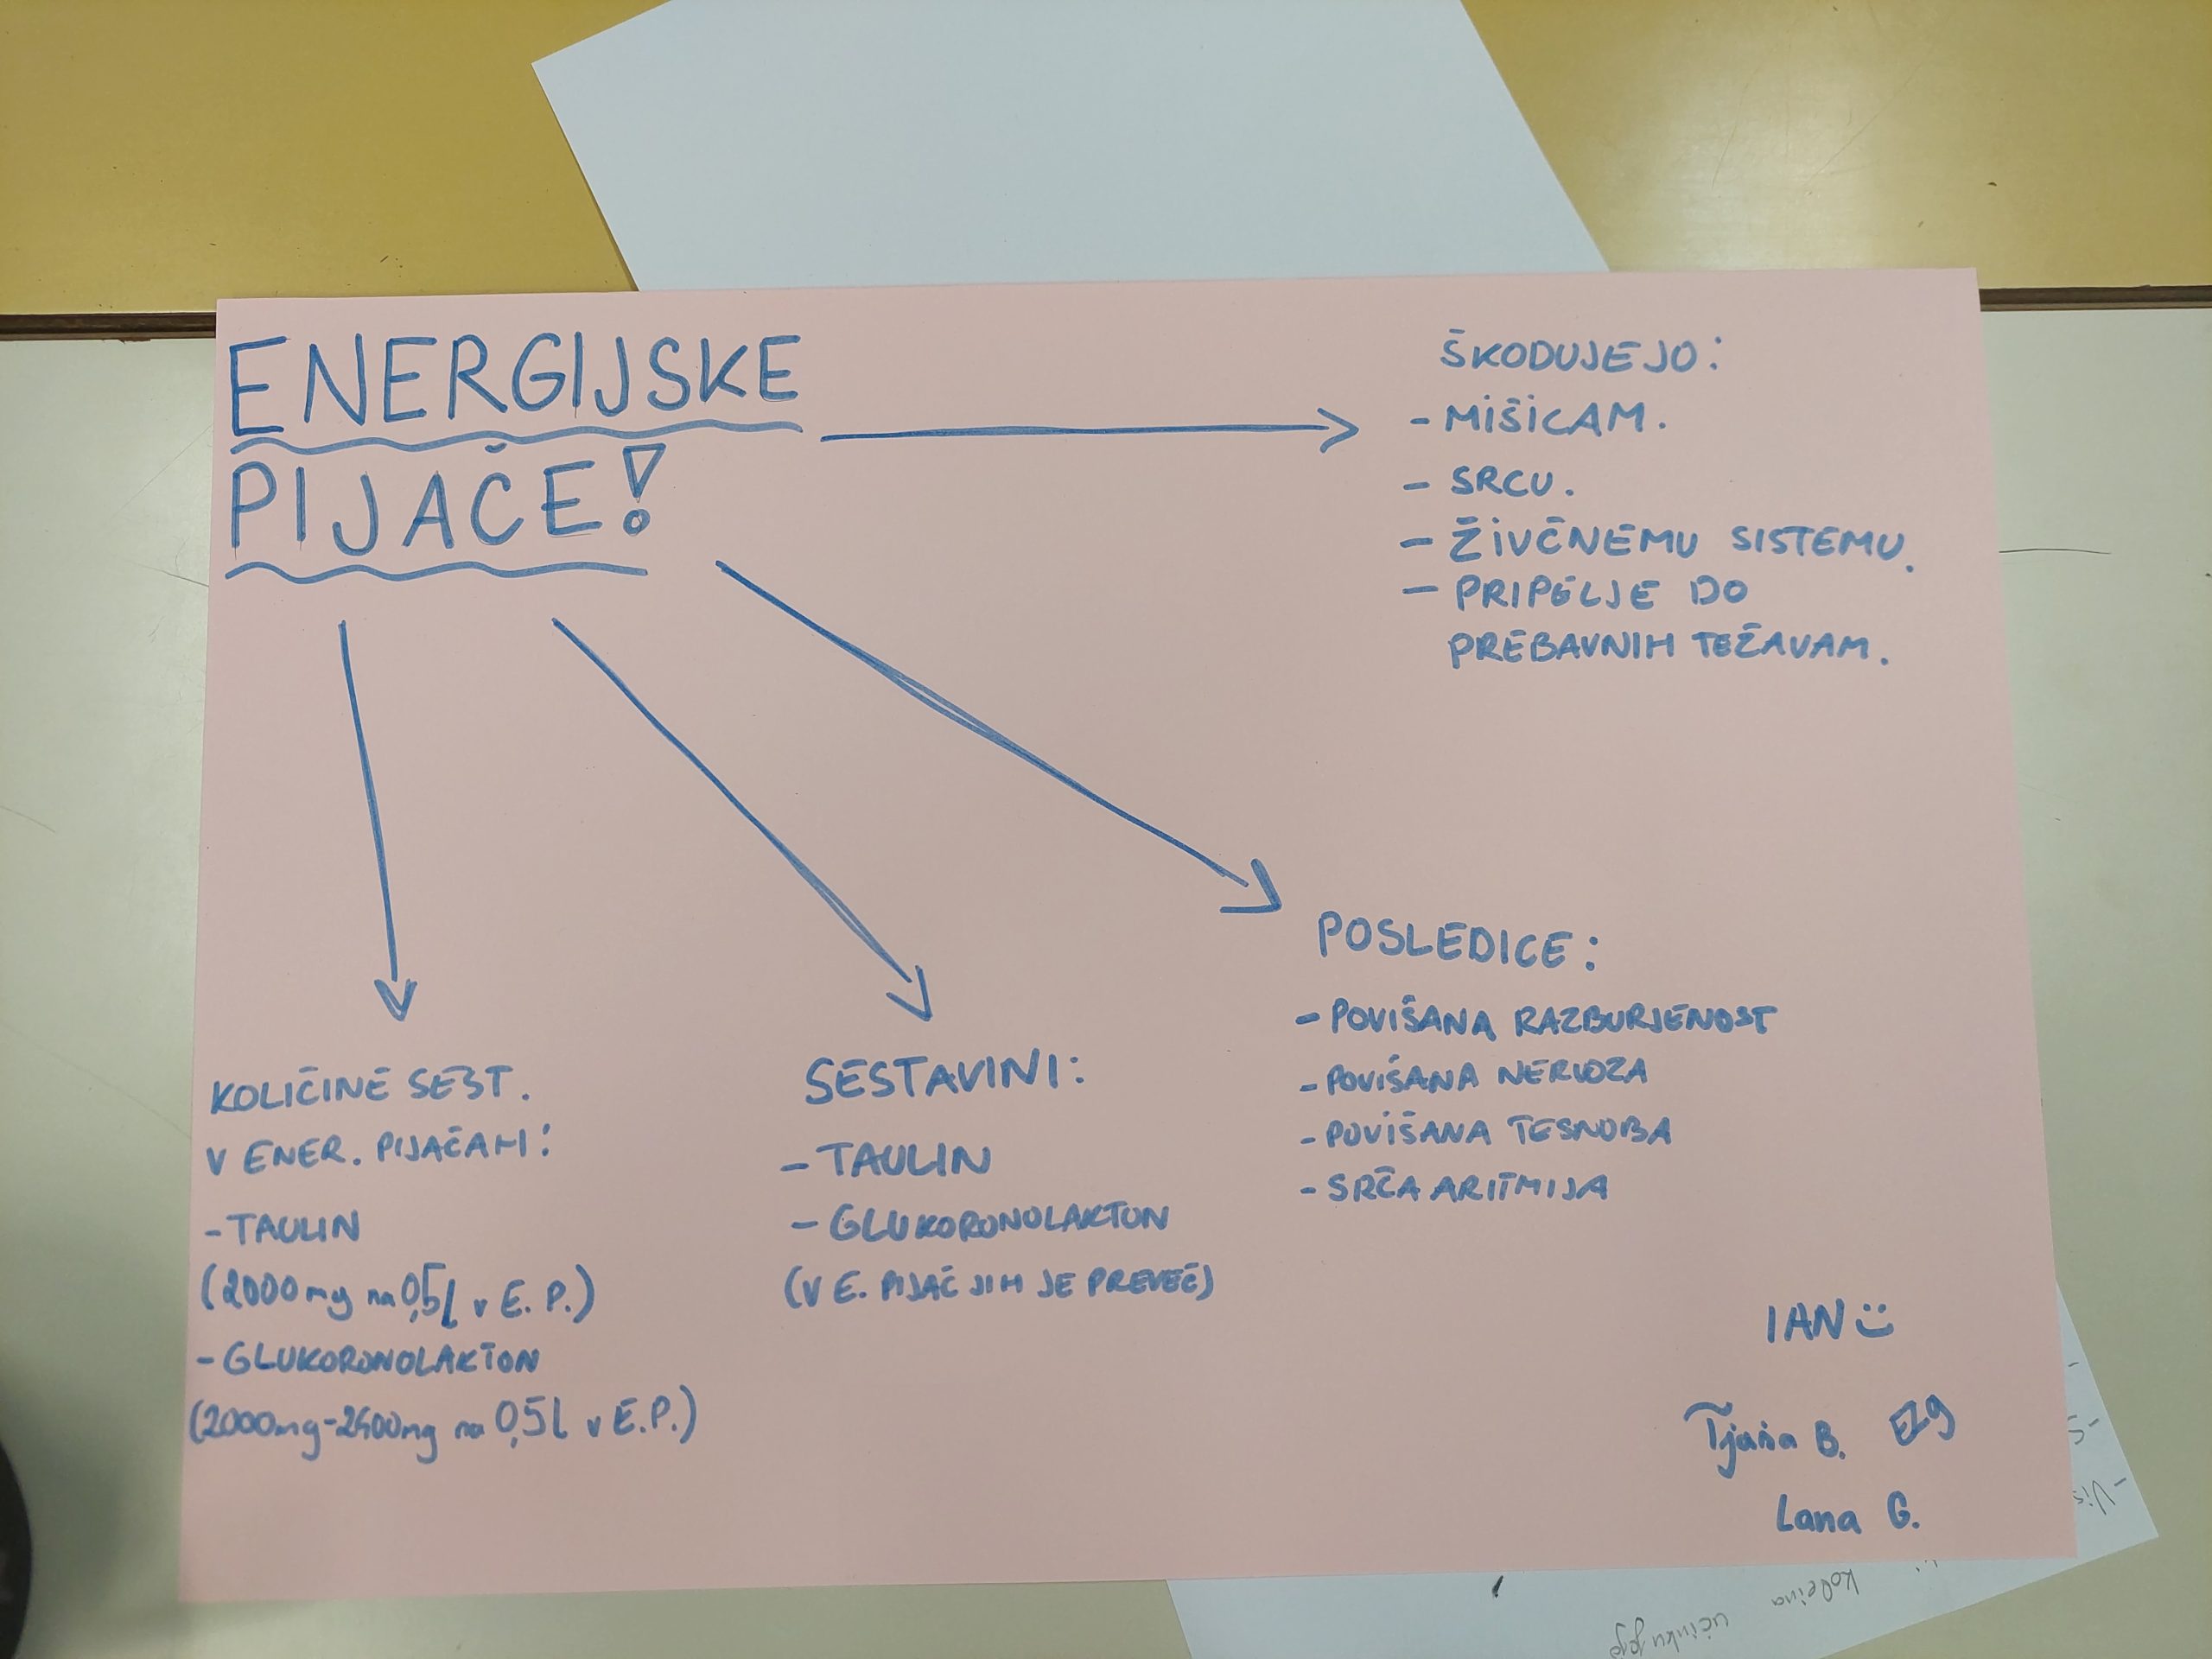 ENERGIJSKE
PIJAČE!
ŠKODUJEJO:
- MIŠICAM.
- SRCU.
- ŽIVČNEMU SISTEMU.
- PRIPELJE DO
PREBAVNIH TEŽAVAM.
POSLEDICE:
- POVIŠANA RAZBURJENOST
- POVIŠANA NERVOZA
- POVIŠANA TESNOBA
- SRČA ARITMIJA
SESTAVINI:
- TAULIN
- GLUKORONOLAKTON
(V E. PIJAČ JIH JE PREVEČ)
KOLIČINE SEST.
V ENER. PIJAČAH:
- TAULIN
(2000mg na 0,5l v E. P.)
- GLUKORONOLAKTON
(2000mg-2400mg na 0,5l v E.P.)
IAN
Tjaša B.
Lana G.
kofeina
učinkuje